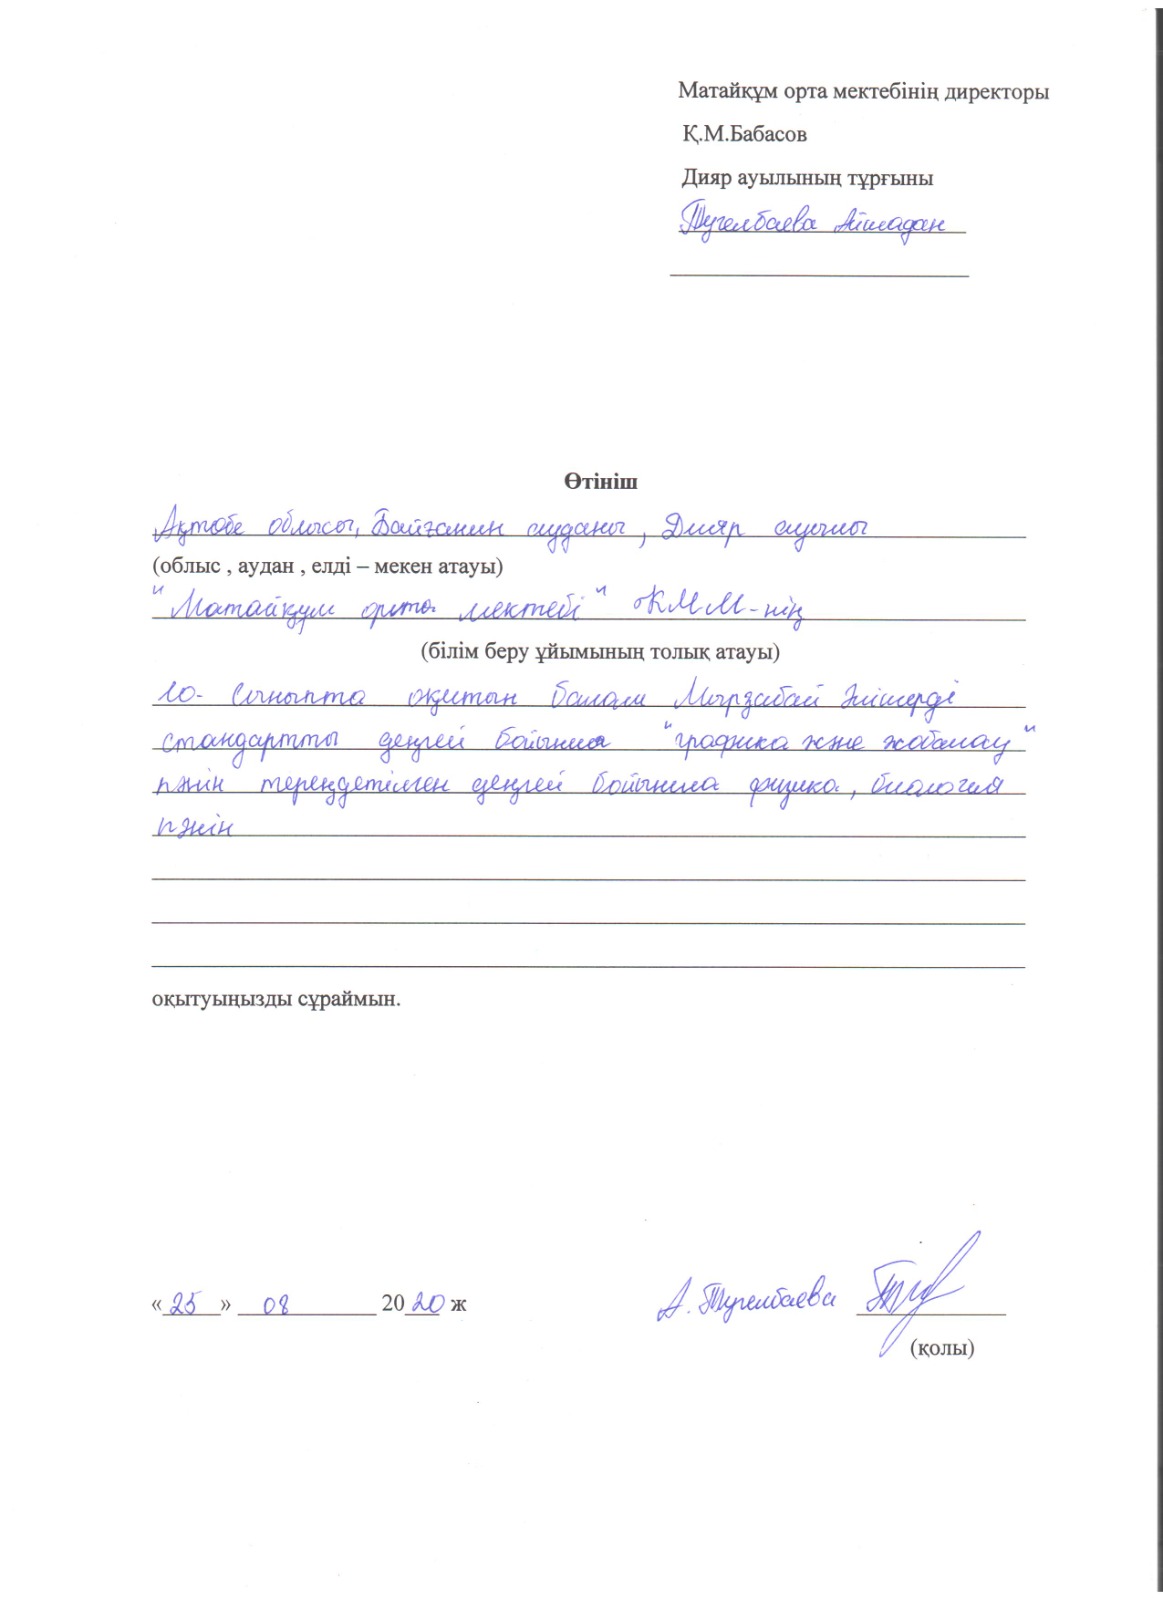 Матайқұм орта мектебінің директоры
Қ.М.Бабасов
Дияр ауылының тұрғыны
Тугелбаева Айшадан
Өтініш
Ақтөбе облысы, Байғанин ауданы, Дияр ауылы
(облыс , аудан , елді – мекен атауы)
"Матайқұм орта мектебі" КММ-нің
(білім беру ұйымының толық атауы)
10- сыныпта оқитын балам Мырзабай
стандартты деңгей бойынша "графика және жобалау"
пәнін тереңдетілген деңгей бойынша физика, биология
пәнін
оқытуыңызды сұраймын.
«25» 08 2020 ж А. Тугелбаева
(қолы)